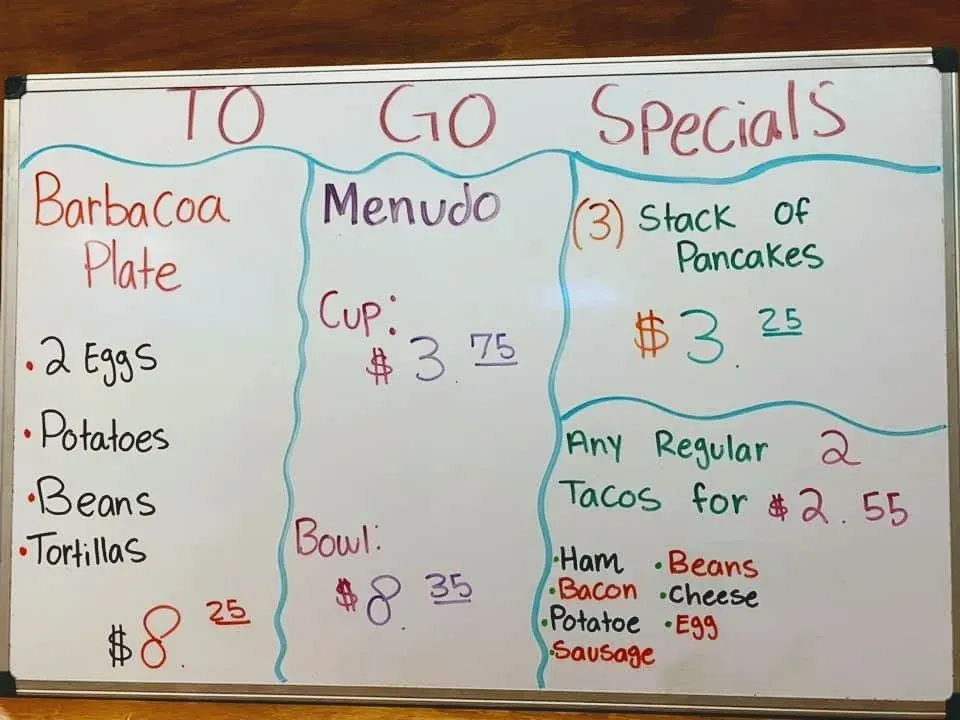 TO GO Specials
Barbacoa
Plate
• 2 Eggs
• Potatoes
• Beans
• Tortillas
$8.25
Menudo
Cup:
$3.75
Bowl:
$8.35
(3) Stack of
Pancakes
$3.25
Any Regular 2
Tacos for $2.55
• Ham • Beans
• Bacon • Cheese
• Potatoe • Egg
• Sausage